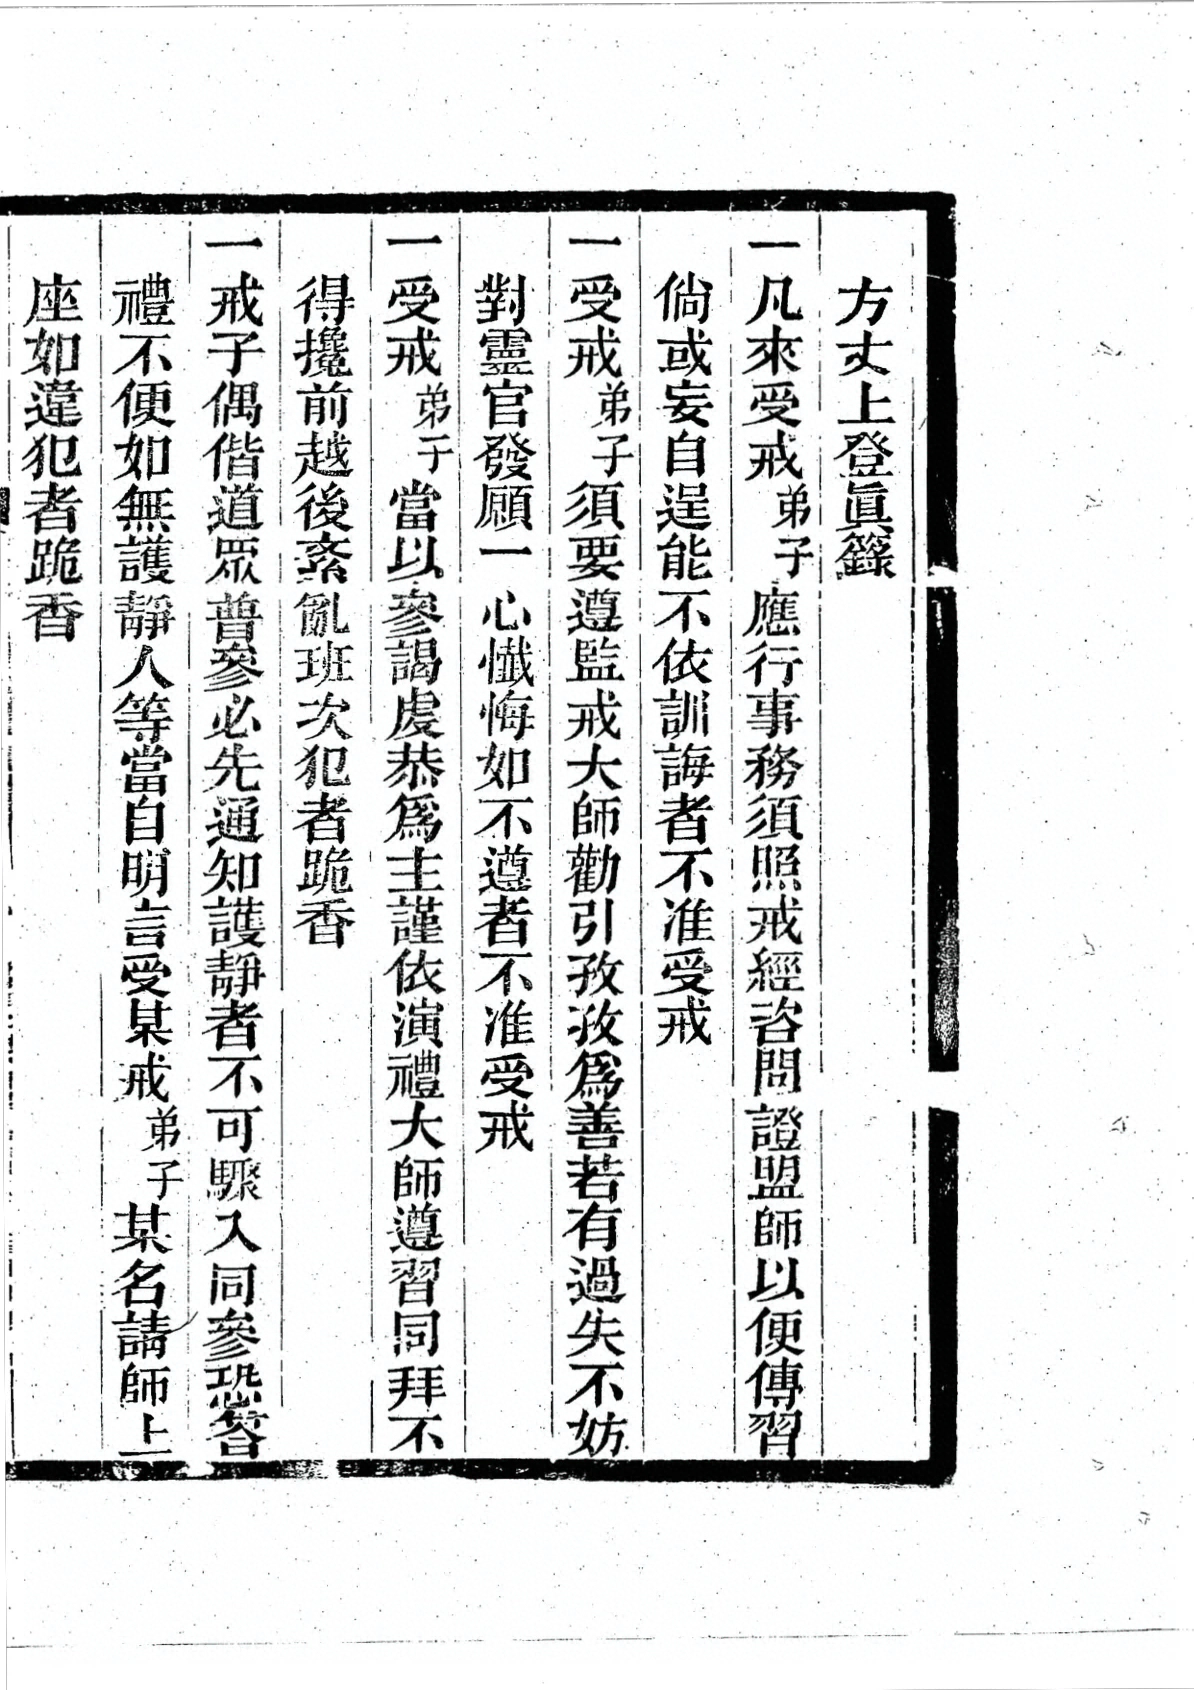 方丈上登眞籙
一凡來受戒弟子應行事務須照戒經咨問證盟師以便傳習
倘或妄自逞能不依訓誨者不准受戒
一受戒弟子須要遵監戒大師勸引孜孜爲善若有過失不妨
對靈官發願一心懺悔如不遵者不准受戒
一受戒弟子當以參謁虔恭爲主謹依演禮大師遵習同拜不
得攙前越後紊亂班次犯者跪香
一戒子偶偕道眾普參必先通知護靜者不可驟入同參恐答
禮不便如無護靜人等當自明言受某戒弟子某名請師上
座如違犯者跪香